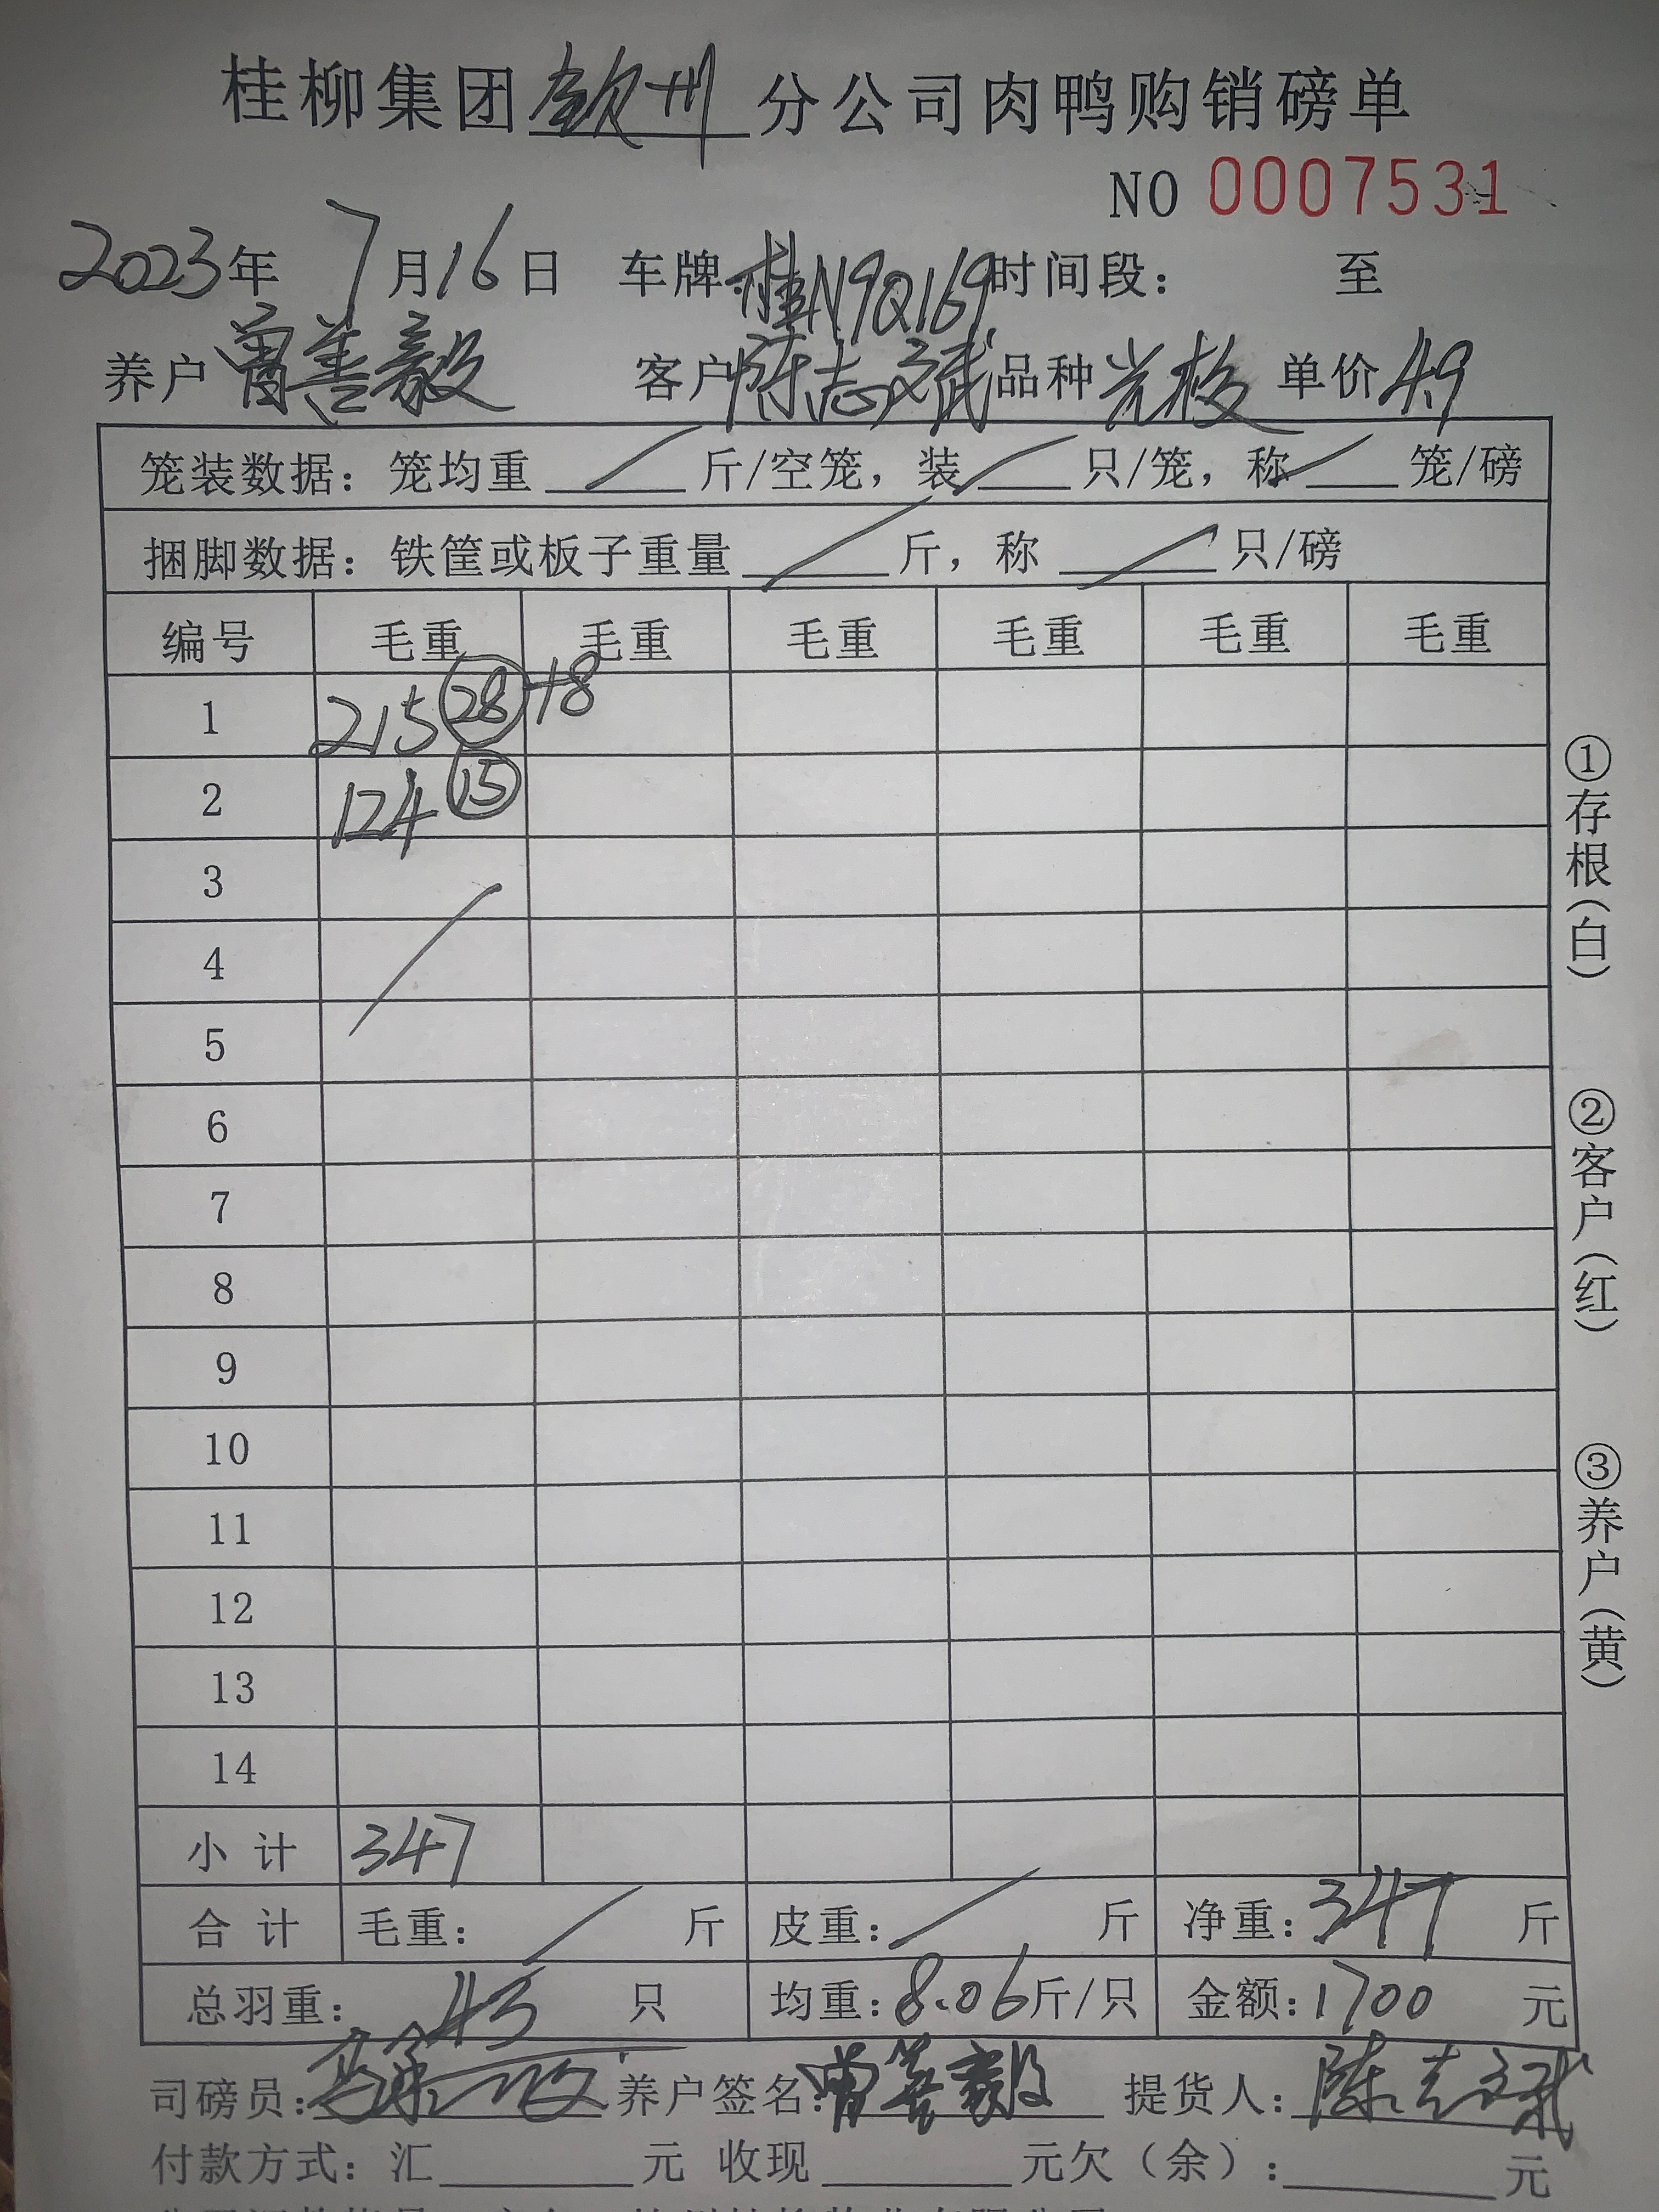 桂柳集团钦州分公司肉鸭购销磅单
NO 0007531
2023年7月16日 车牌:桂N9Q169时间段: 至
养户曾善毅 客户陈志斌品种 单价4.9
笼装数据:笼均重 斤/空笼,装 只/笼,称 笼/磅
捆脚数据:铁筐或板子重量 斤,称 只/磅
编号 毛重 毛重 毛重 毛重 毛重 毛重
1 215 28 +8
2 124 15
3
4
5
6
7
8
9
10
11
12
13
14
小计 347
合计 毛重: 斤 皮重: 斤 净重:347 斤
总羽重: 43 只 均重:8.06斤/只 金额:1700 元
司磅员: 养户签名:曾善毅 提货人:陈志斌
付款方式:汇 元 收现 元欠(余): 元
①存根(白)
②客户(红)
③养户(黄)